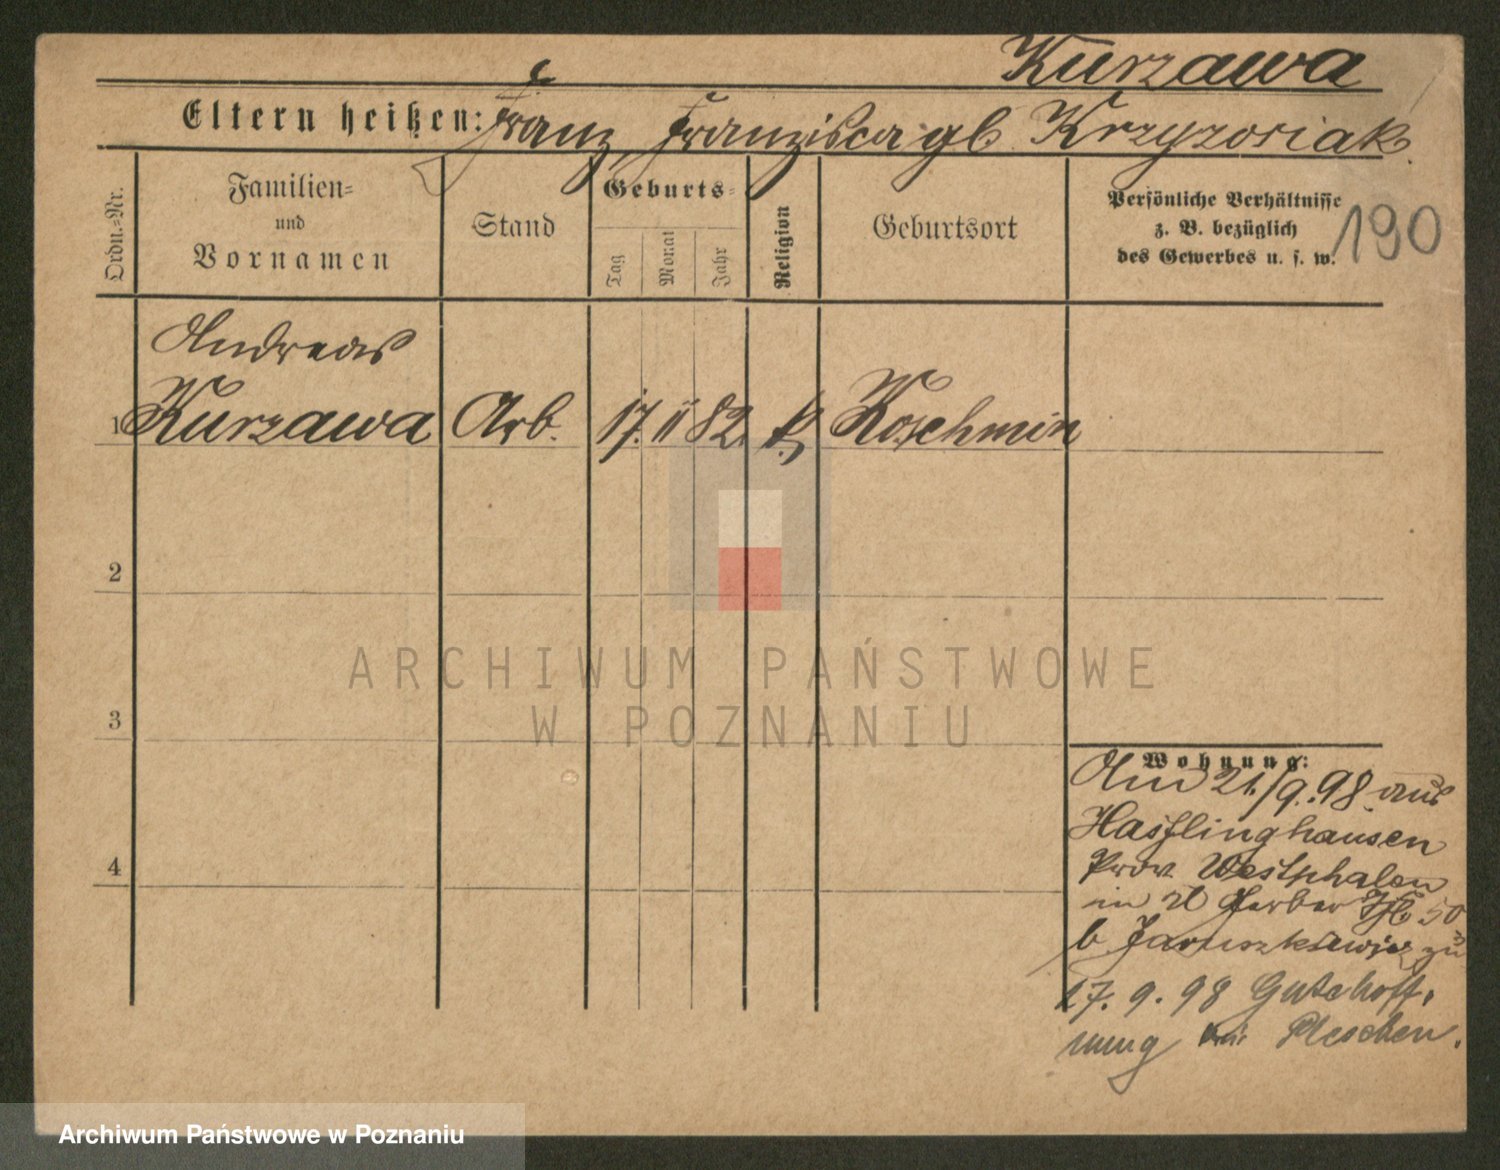 Kurzawa
Eltern heißen: Franz, Franzisca gb Krzyzosiak.
190
Ordn.=Nr.
Familien=
und
Vornamen
Stand
Geburts=
Tag
Monat
Jahr
Religion
Geburtsort
Persönliche Verhältnisse
z. B. bezüglich
des Gewerbes u. s. w.
Andreas
1 Kurzawa Arb. 17. II 82. Koschmin
2
3
4
ARCHIWUM PAŃSTWOWE
W POZNANIU
Wohnung:
Am 21./9.98. aus
Hasslinghausen
Prov. Westphalen
in Gerber 50
b. zu
17. 9. 98 Gutehoff,
nung bei Pleschen.
Archiwum Państwowe w Poznaniu